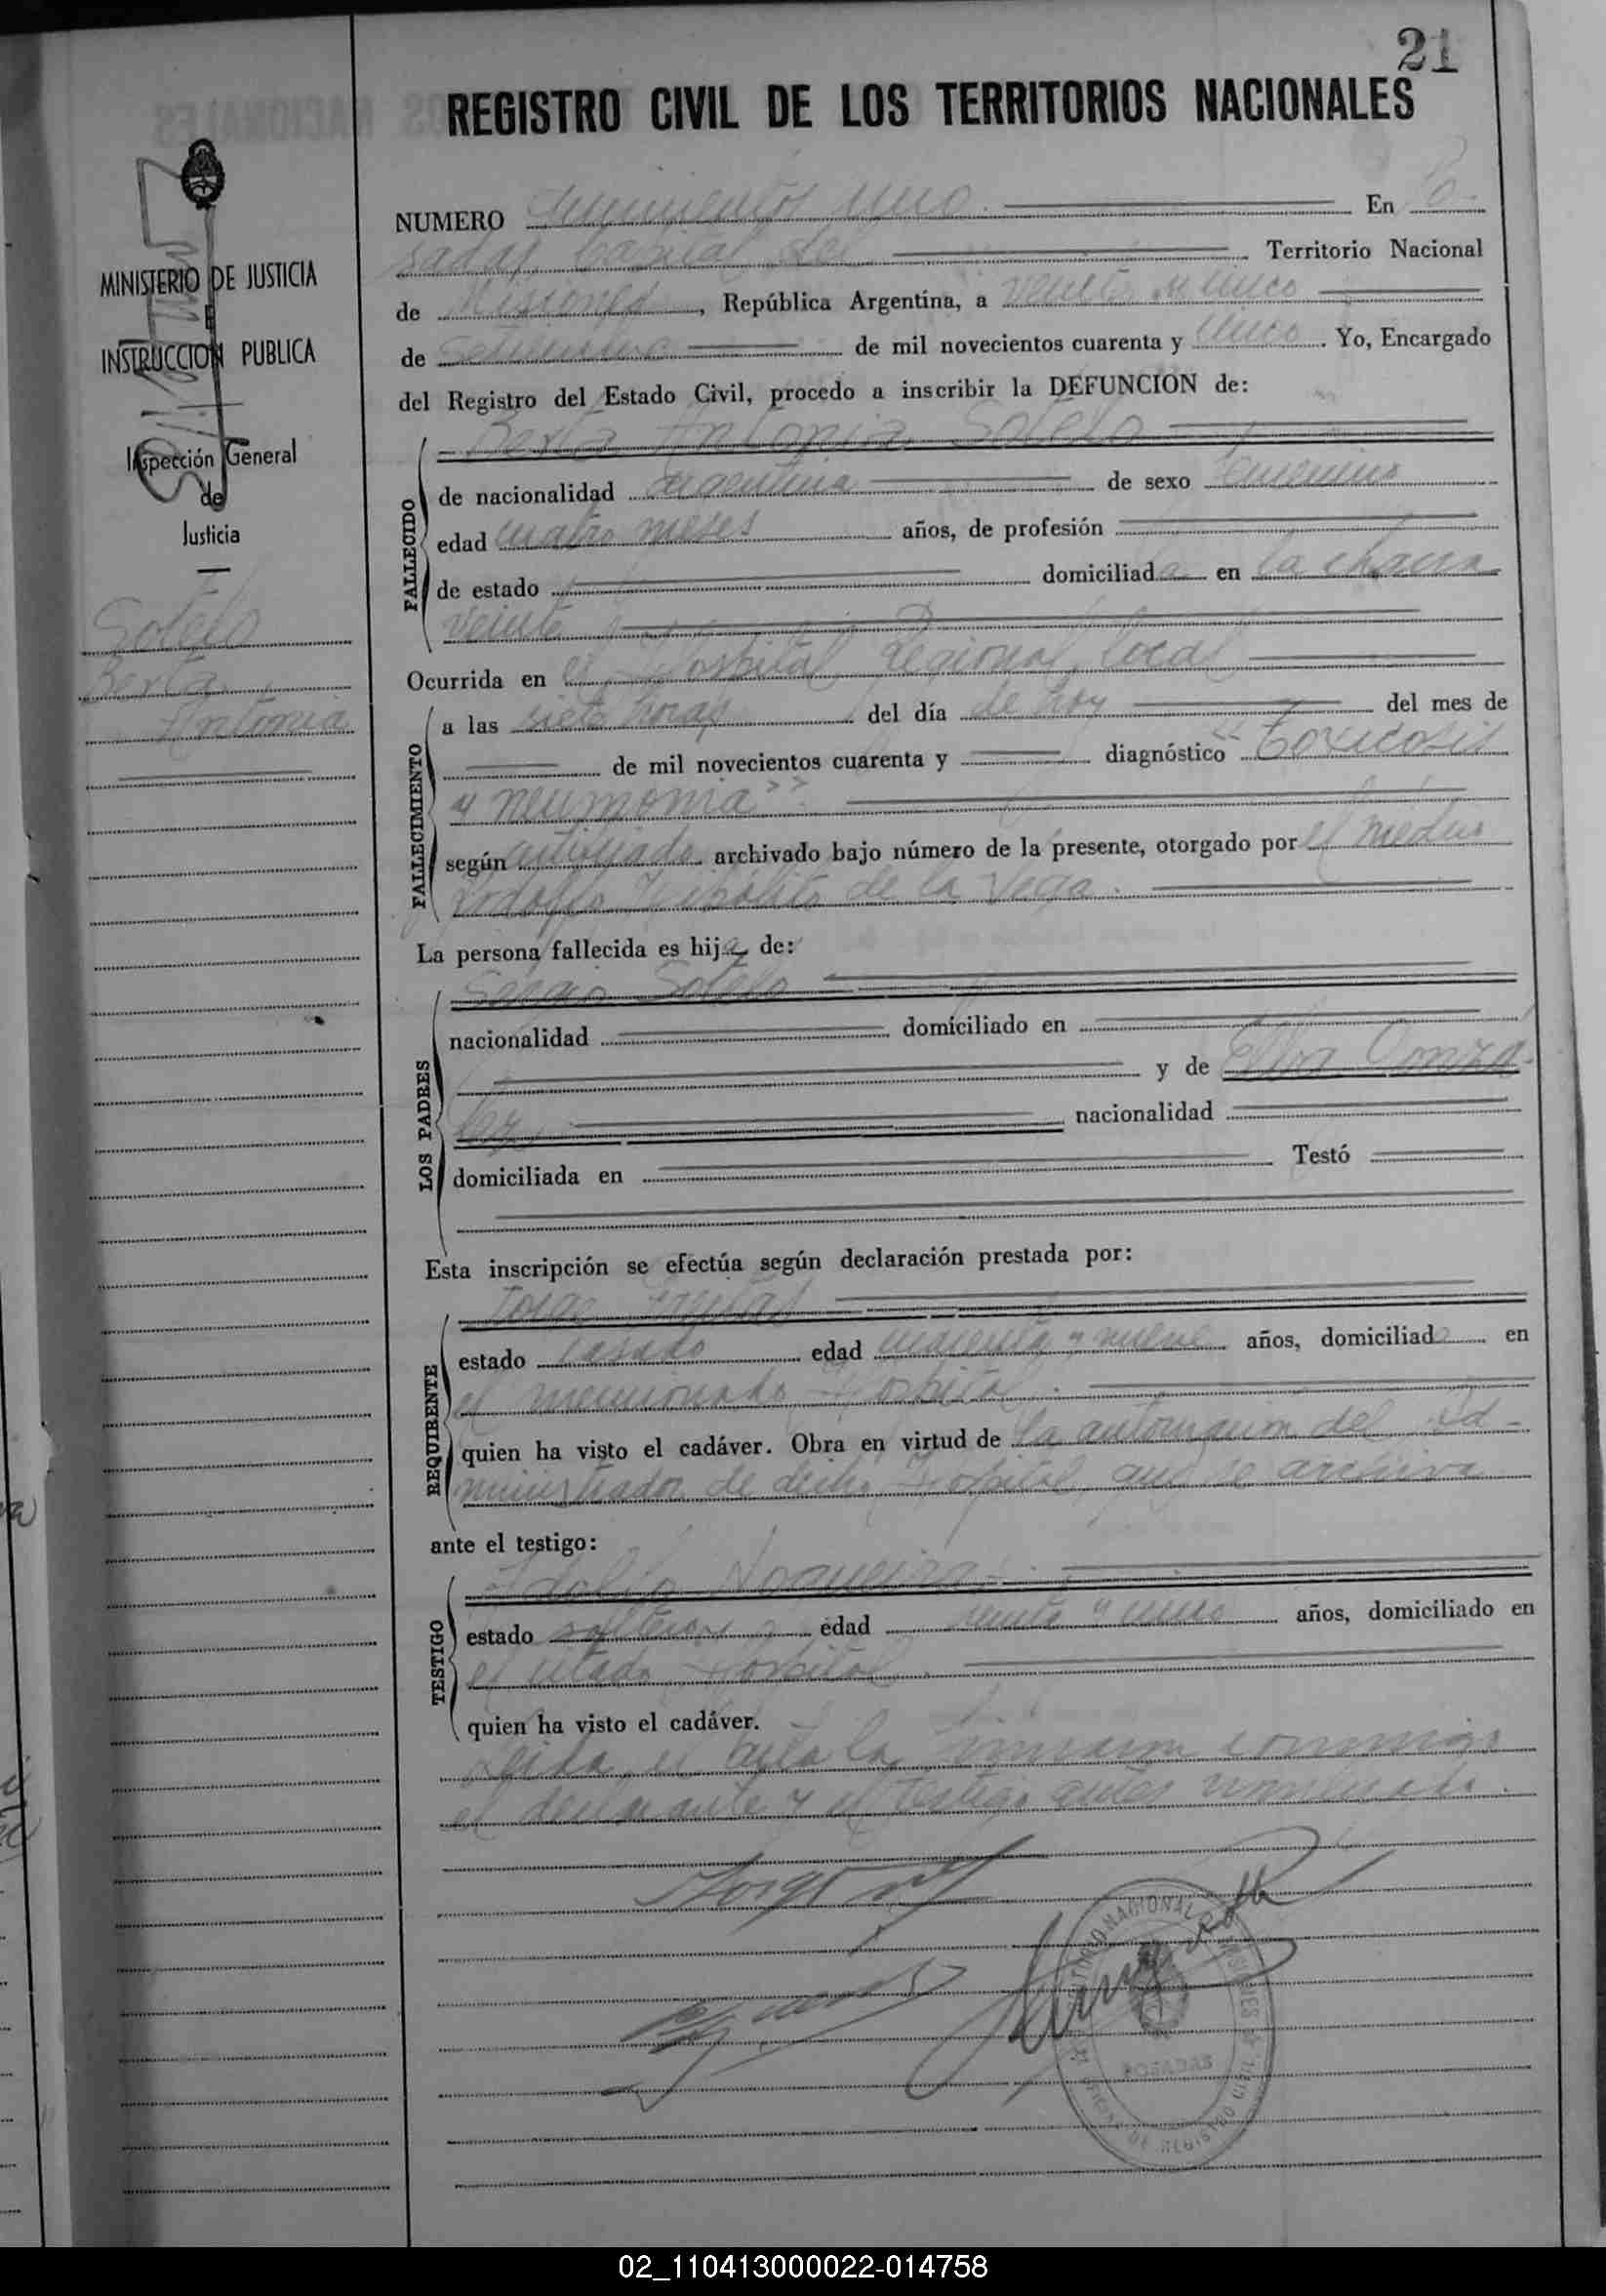 21
REGISTRO CIVIL DE LOS TERRITORIOS NACIONALES
MINISTERIO DE JUSTICIA
INSTRUCCION PUBLICA
Inspección General
de
Justicia
Sotelo
Berta
Antonia
NUMERO uno En Po-
sadas Capital del Territorio Nacional
de Misiones, República Argentina, a veinte y cinco
de Setiembre de mil novecientos cuarenta y cinco. Yo, Encargado
del Registro del Estado Civil, procedo a inscribir la DEFUNCION de:
Berta Antonia Sotelo
FALLECIDO
de nacionalidad argentina de sexo femenino
edad cuatro meses años, de profesión
de estado domiciliada en la chacra
veinte
Ocurrida en el Hospital Regional local
FALLECIMIENTO
a las siete horas del día de hoy del mes de
de mil novecientos cuarenta y diagnóstico "Toxicosis
y neumonia".
según certificado archivado bajo número de la presente, otorgado por el médico
Rodolfo Hipólito de la Vega.
La persona fallecida es hija de:
LOS PADRES
Sergio Sotelo
nacionalidad domiciliado en
y de Elba Gonza-
lez nacionalidad
domiciliada en Testó
Esta inscripción se efectúa según declaración prestada por:
REQUIRENTE
Jorge Freytas
estado casado edad y nueve años, domiciliado en
el mencionado Hospital.
quien ha visto el cadáver. Obra en virtud de la autorización del Ad-
ministrador de dicho Hospital que se archiva
ante el testigo:
TESTIGO
Adolfo Nogueira
estado soltero edad veinte y cinco años, domiciliado en
el citado Hospital.
quien ha visto el cadáver.
Leida el acta la firmaron conmigo
el declarante y el testigo antes nombrado.
POSADAS
02_110413000022-014758